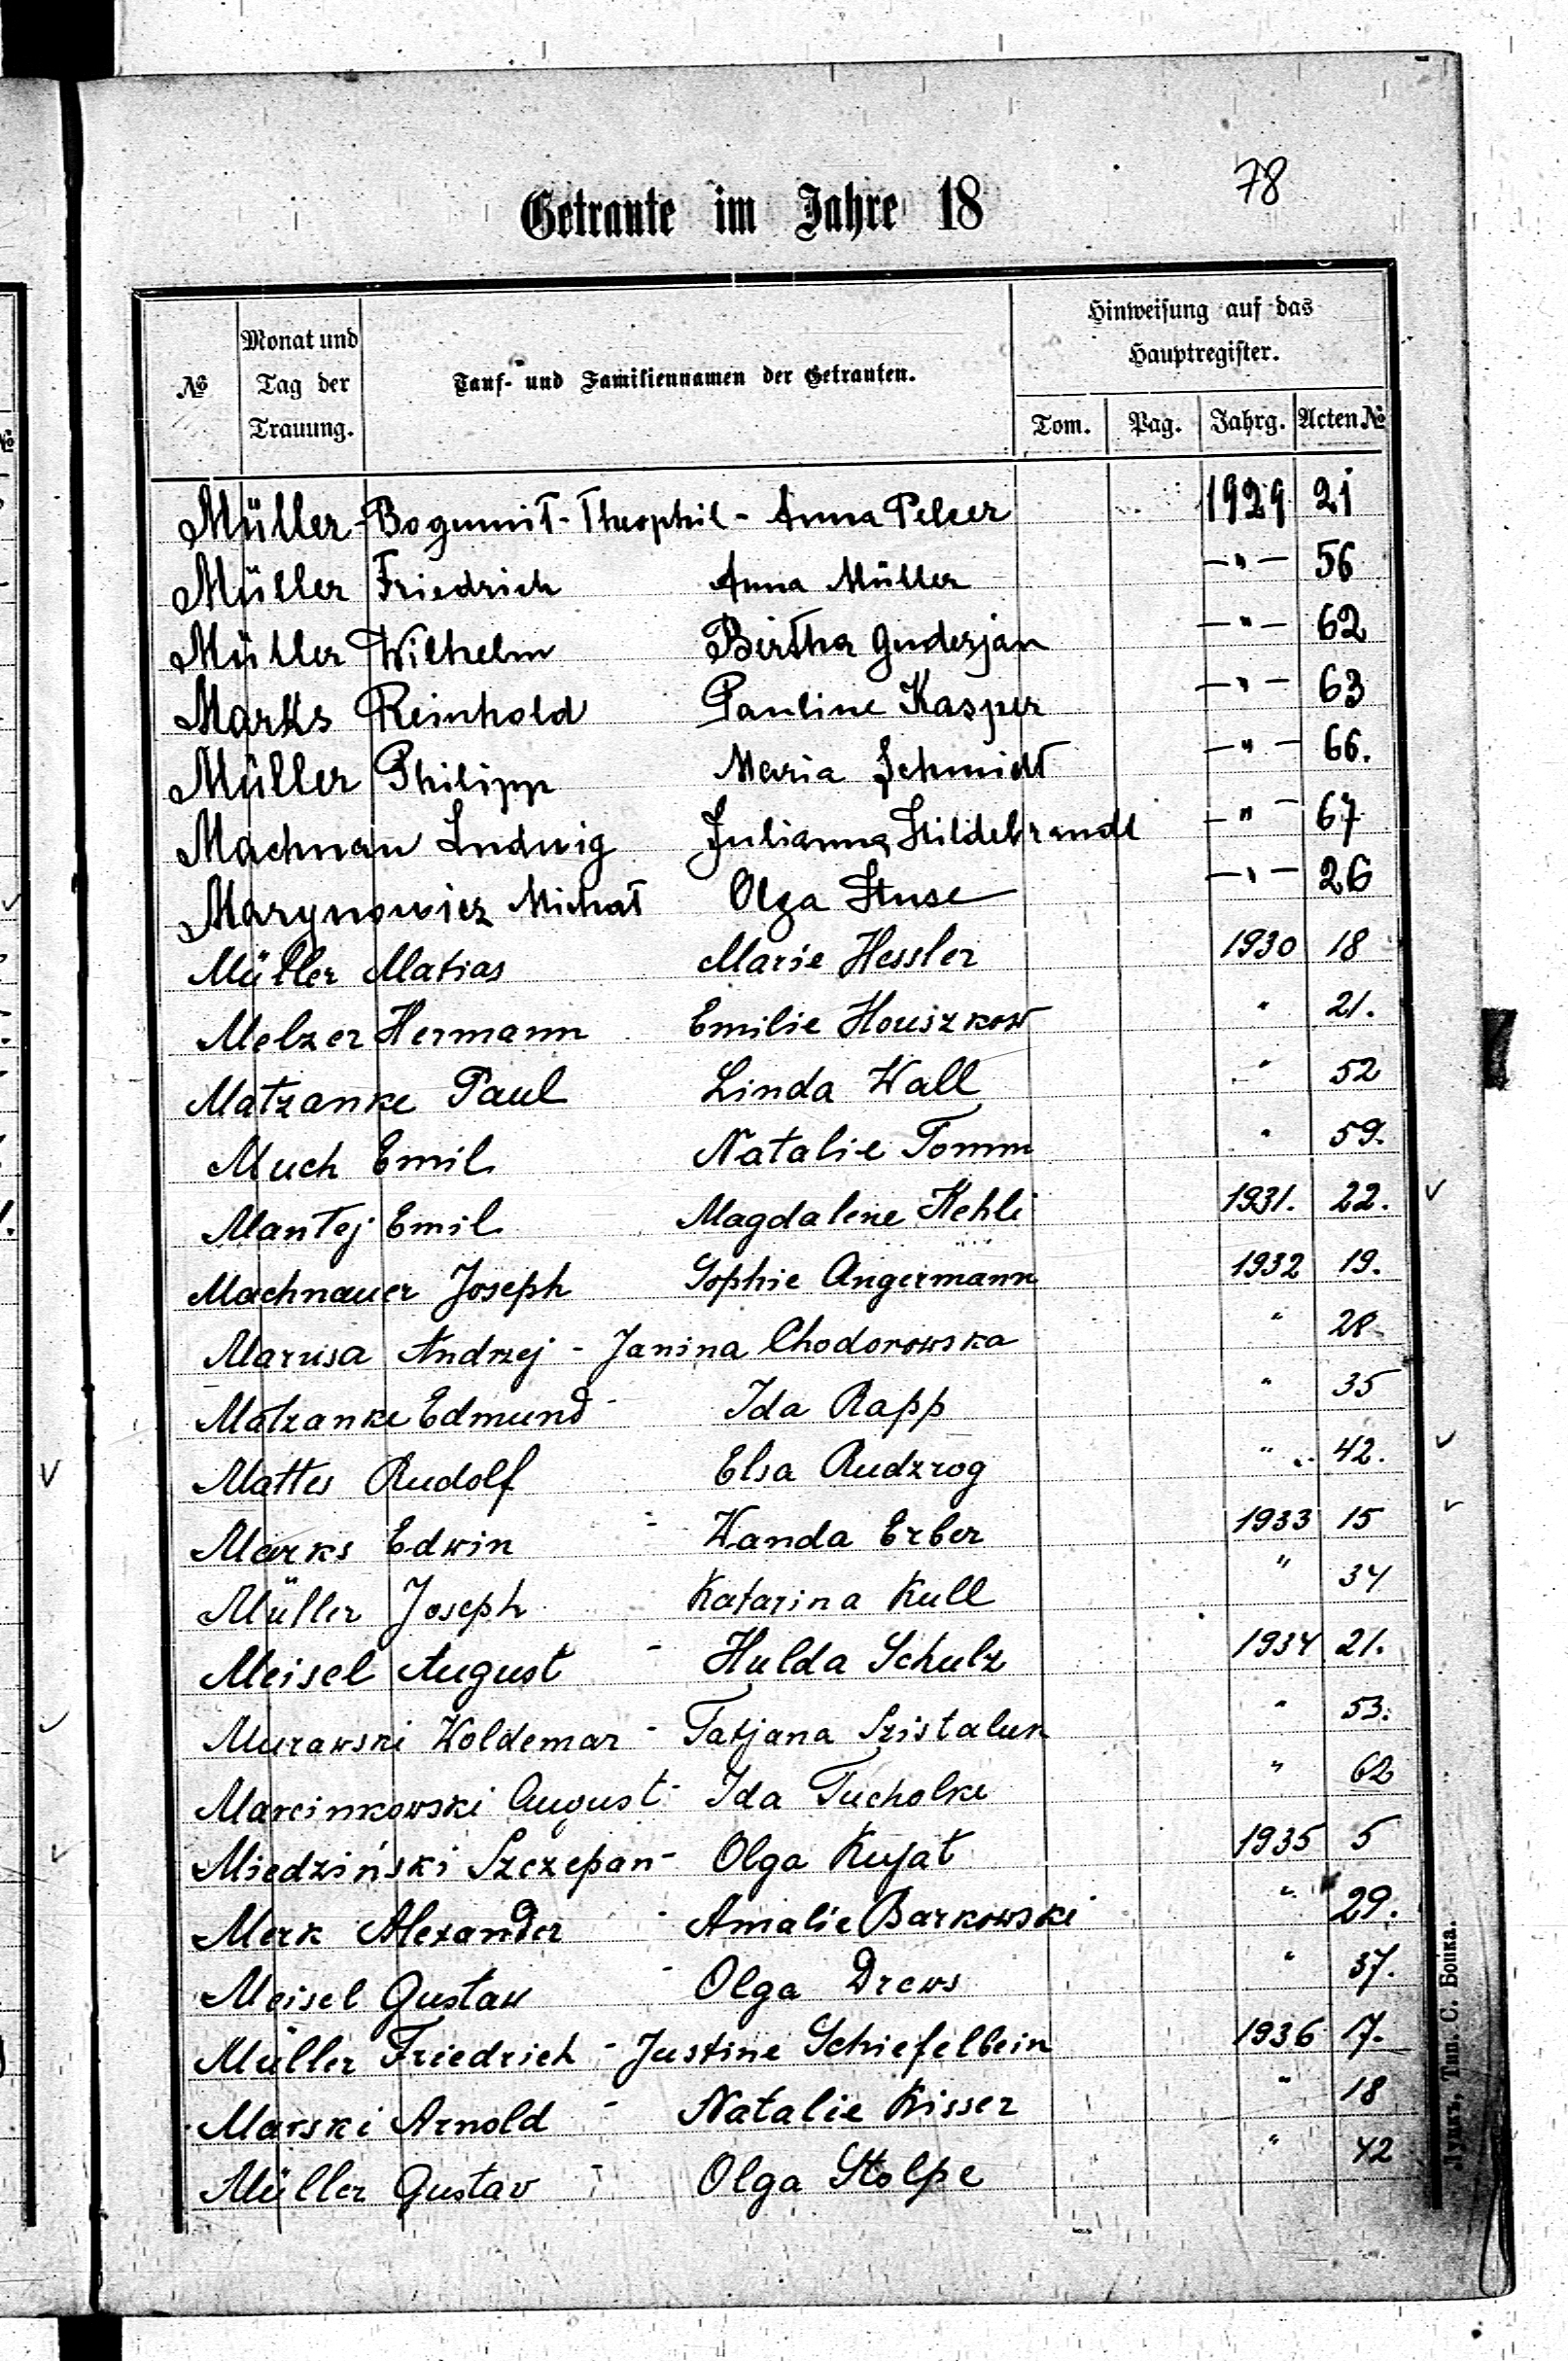 78
Getraute im Jahre 18
№ Monat und Tag der Trauung. Tauf- und Familiennamen der Getrauten. Hinweisung auf das Hauptregister.
Tom. Pag. Jahrg. Acten №
Müller - Bogumił - Theophil - Anna Pelzer 1929 21
Müller Friedrich Anna Müller —"— 56
Müller Wilhelm Bertha Guderjan —"— 62
Marks Reinhold Pauline Kasper —"— 63
Müller Philipp Maria Schmidt —"— 66.
Machnau Ludwig Julianna Hildebrandt —"— 67
Marynowicz Michał Olga Stuse —"— 26
Müller Matias Marie Hessler 1930 18
Melzer Hermann Emilie Houszkow " 21.
Matzanke Paul Linda Wall " 52
Much Emil Natalie Tomm " 59.
Mantej Emil Magdalene Kehli 1931. 22.
Machnauer Joseph Sophie Angermann 1932 19.
Marusa Andrzej - Janina Chodorowska " 28
Matzanke Edmund - Ida Rapp " 35
Mattes Rudolf Elsa Rudzrog " 42.
Marks Edwin - Wanda Erber 1933 15
Müller Joseph Katarina Kull " 34
Meisel August - Hulda Schulz 1934 21.
Murawski Woldemar - Tatjana Szistaluk " 53.
Marcinkowski August - Ida Tucholke " 62
Miedziński Szczepan - Olga Kujat 1935 5
Merk Alexander - Amalie Barkowski " 29.
Meisel Gustaw - Olga Drews " 37.
Müller Friedrich - Justine Schiefelbein 1936 17.
Marski Arnold - Natalie Kisser " 18
Müller Gustav - Olga Stolpe " 42
Луцкъ, Тип. С. Бойка.